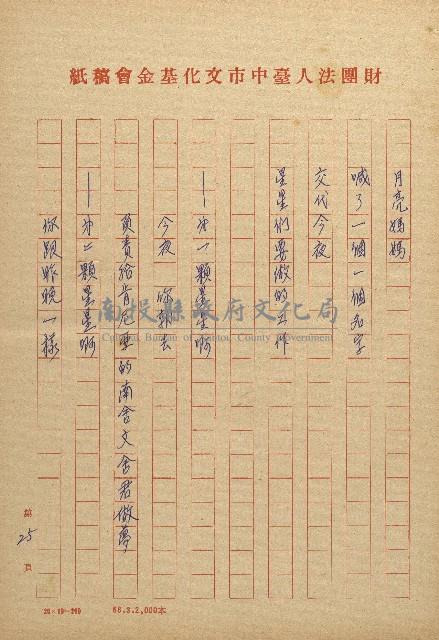 財團法人臺中市文化基金會稿紙
月亮媽媽
喊了一個一個名字
交代今夜
星星們要做的工作
──第一顆星星啊
今夜 你都去
負責給肯尼士的南舍文舍君做夢
──第二顆星星啊
你跟昨晚一樣
第25頁
68.3.2,000本
南投縣政府文化局
Cultural Bureau of Nantou County Government